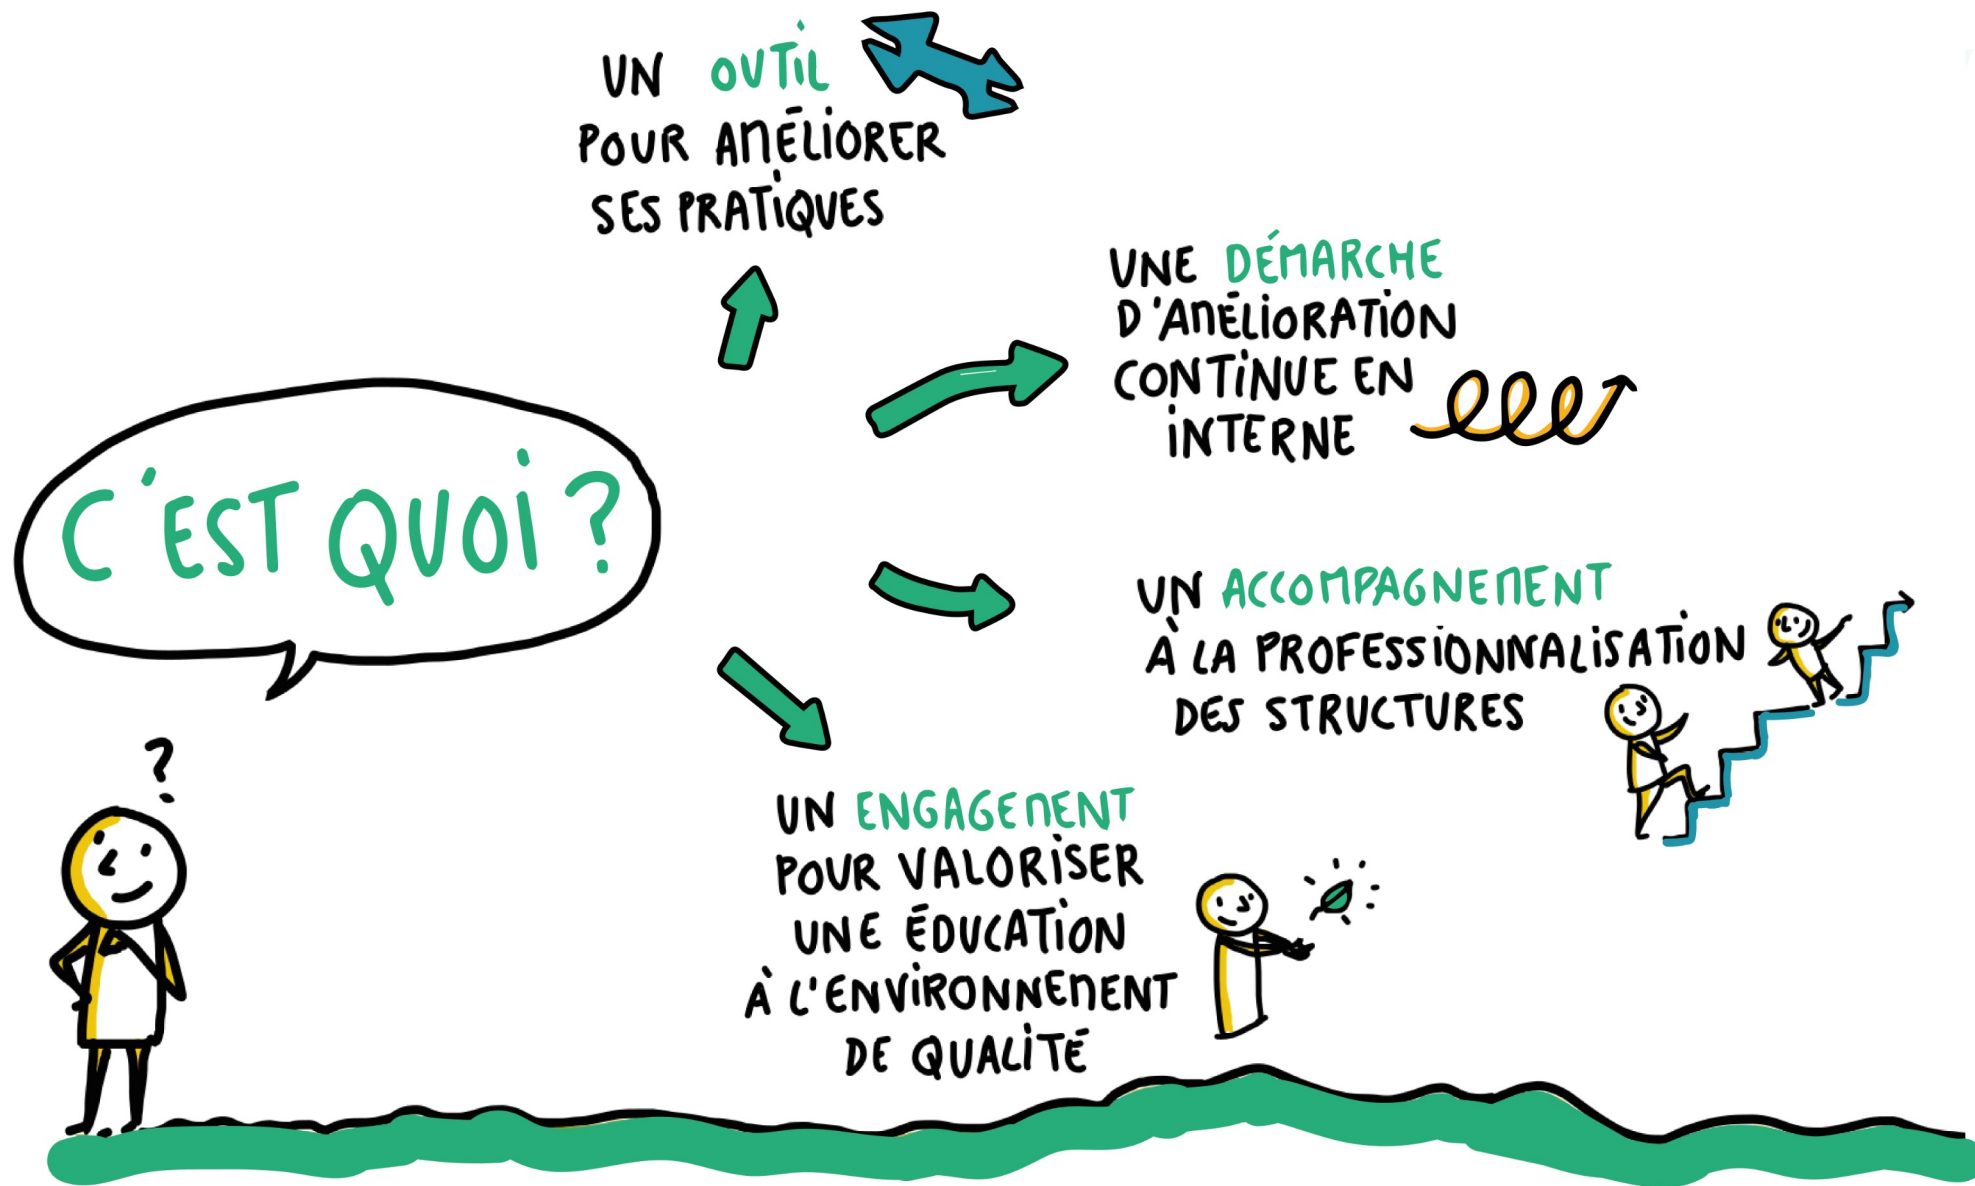 UN OUTIL
POUR AMÉLIORER
SES PRATIQUES
UNE DÉMARCHE
D'AMÉLIORATION
CONTINUE EN
INTERNE
C'EST QUOI ?
UN ACCOMPAGNEMENT
À LA PROFESSIONNALISATION
DES STRUCTURES
?
UN ENGAGEMENT
POUR VALORISER
UNE ÉDUCATION
À L'ENVIRONNEMENT
DE QUALITÉ